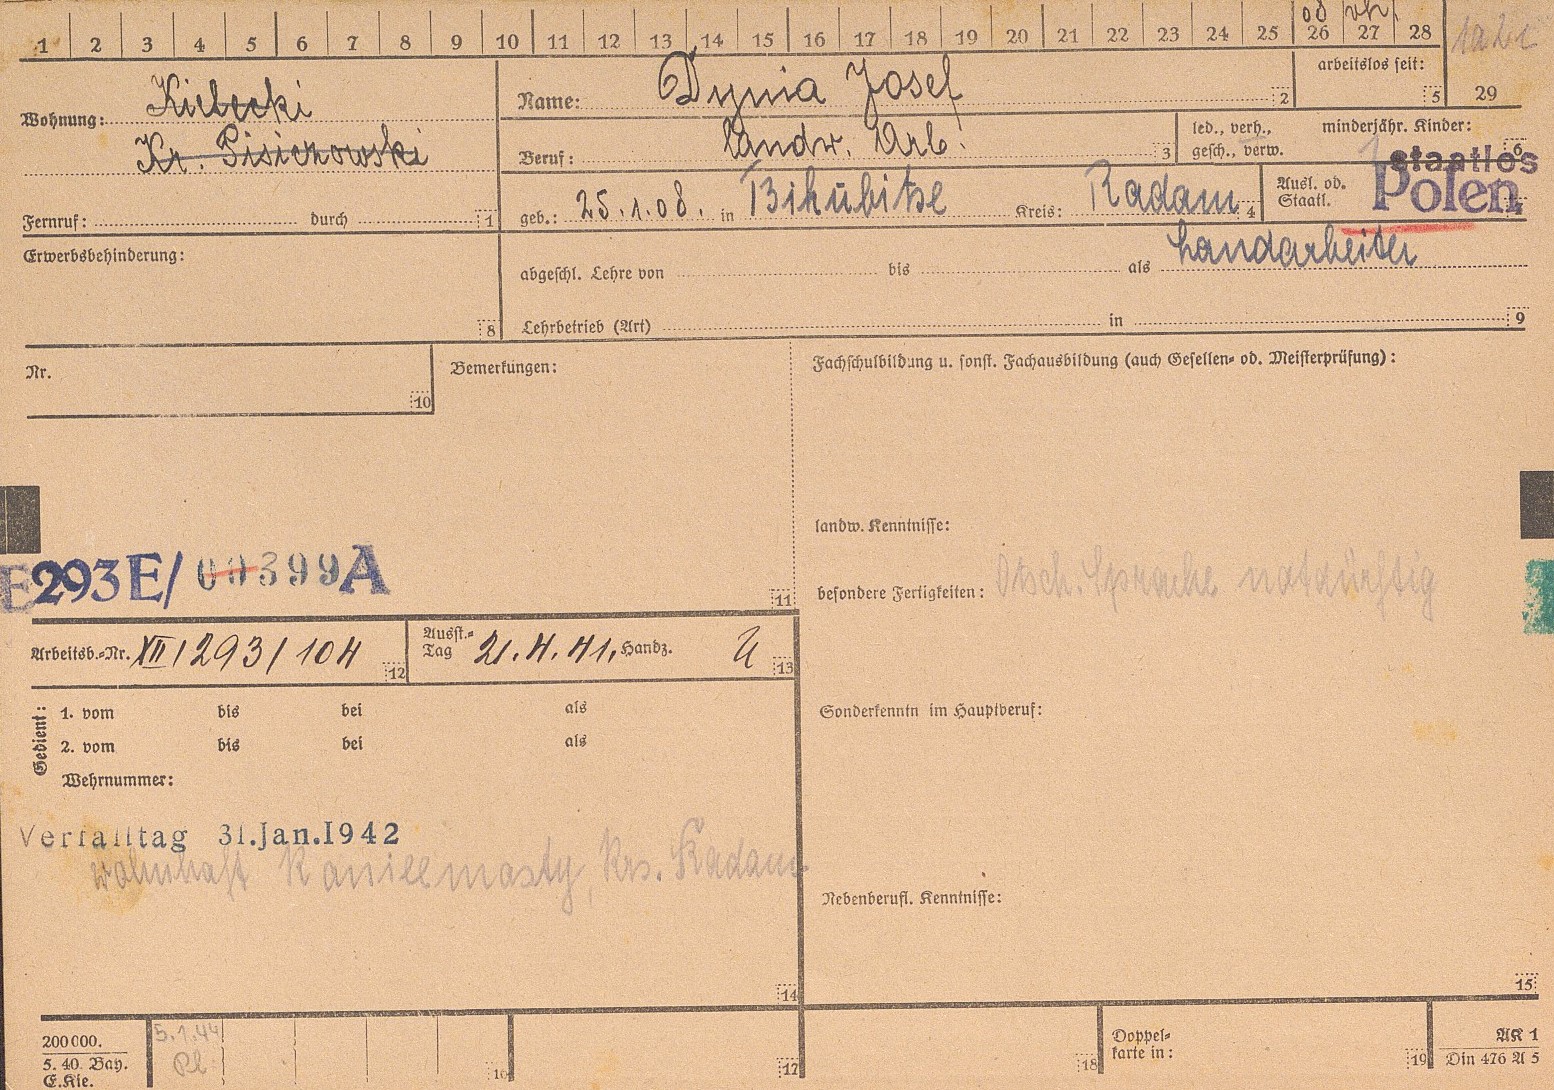 1 2 3 4 5 6 7 8 9 10 11 12 13 14 15 16 17 18 19 20 21 22 23 24 25 26 27 28
od vh.
29
Wohnung: Kielecki
Kr. Pisichowski
Fernruf: durch 1
Name: Dynia Josef 2
arbeitslos seit: 5
Beruf: landw. Arb. 3
led., verh., gesch., verw.
minderjähr. Kinder: 6
geb.: 25.1.08. in Bikubitse Kreis: Radam 4
Ausl. od. Staatl. staatlos Polen
Erwerbsbehinderung: 8
abgeschl. Lehre von bis als Landarbeiter
Lehrbetrieb (Art) in 9
Nr. 10
Bemerkungen:
Fachschulbildung u. sonst. Fachausbildung (auch Gesellen- od. Meisterprüfung):
landw. Kenntnisse:
E293E/00399A
11
besondere Fertigkeiten: Dtsch. Sprache notdürftig
Arbeitsb.-Nr. XII/293/104 12
Ausst.-Tag 21.4.41. Handz. 13
Sonderkenntn im Hauptberuf:
Gedient: 1. vom bis bei als
2. vom bis bei als
Wehrnummer:
Verfalltag 31.Jan.1942
wohnhaft Krs. Radam
Nebenberufl. Kenntnisse:
14
15
200000.
5. 40. Bay.
E.Kle.
5.1.44
Pl
16
17
18
Doppelkarte in: 19
AK 1
Din 476 A 5